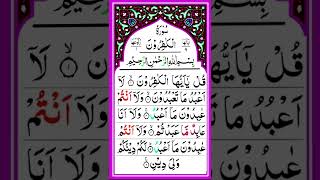 سُوْرَةُ
الْكٰفِرُوْنَ
بِسْمِ اللّٰهِ الرَّحْمٰنِ الرَّحِيْمِ
قُلْ يٰۤاَيُّهَا الْكٰفِرُوْنَ ۙ لَاۤ
اَعْبُدُ مَا تَعْبُدُوْنَ ۙ وَلَاۤ اَنْتُمْ
عٰبِدُوْنَ مَاۤ اَعْبُدُ ۚ وَلَاۤ اَنَا
عَابِدٌ مَّا عَبَدْتُّمْ ۙ وَلَاۤ اَنْتُمْ
عٰبِدُوْنَ مَاۤ اَعْبُدُ ؕ لَكُمْ دِيْنُكُمْ
وَلِيَ دِيْنِ